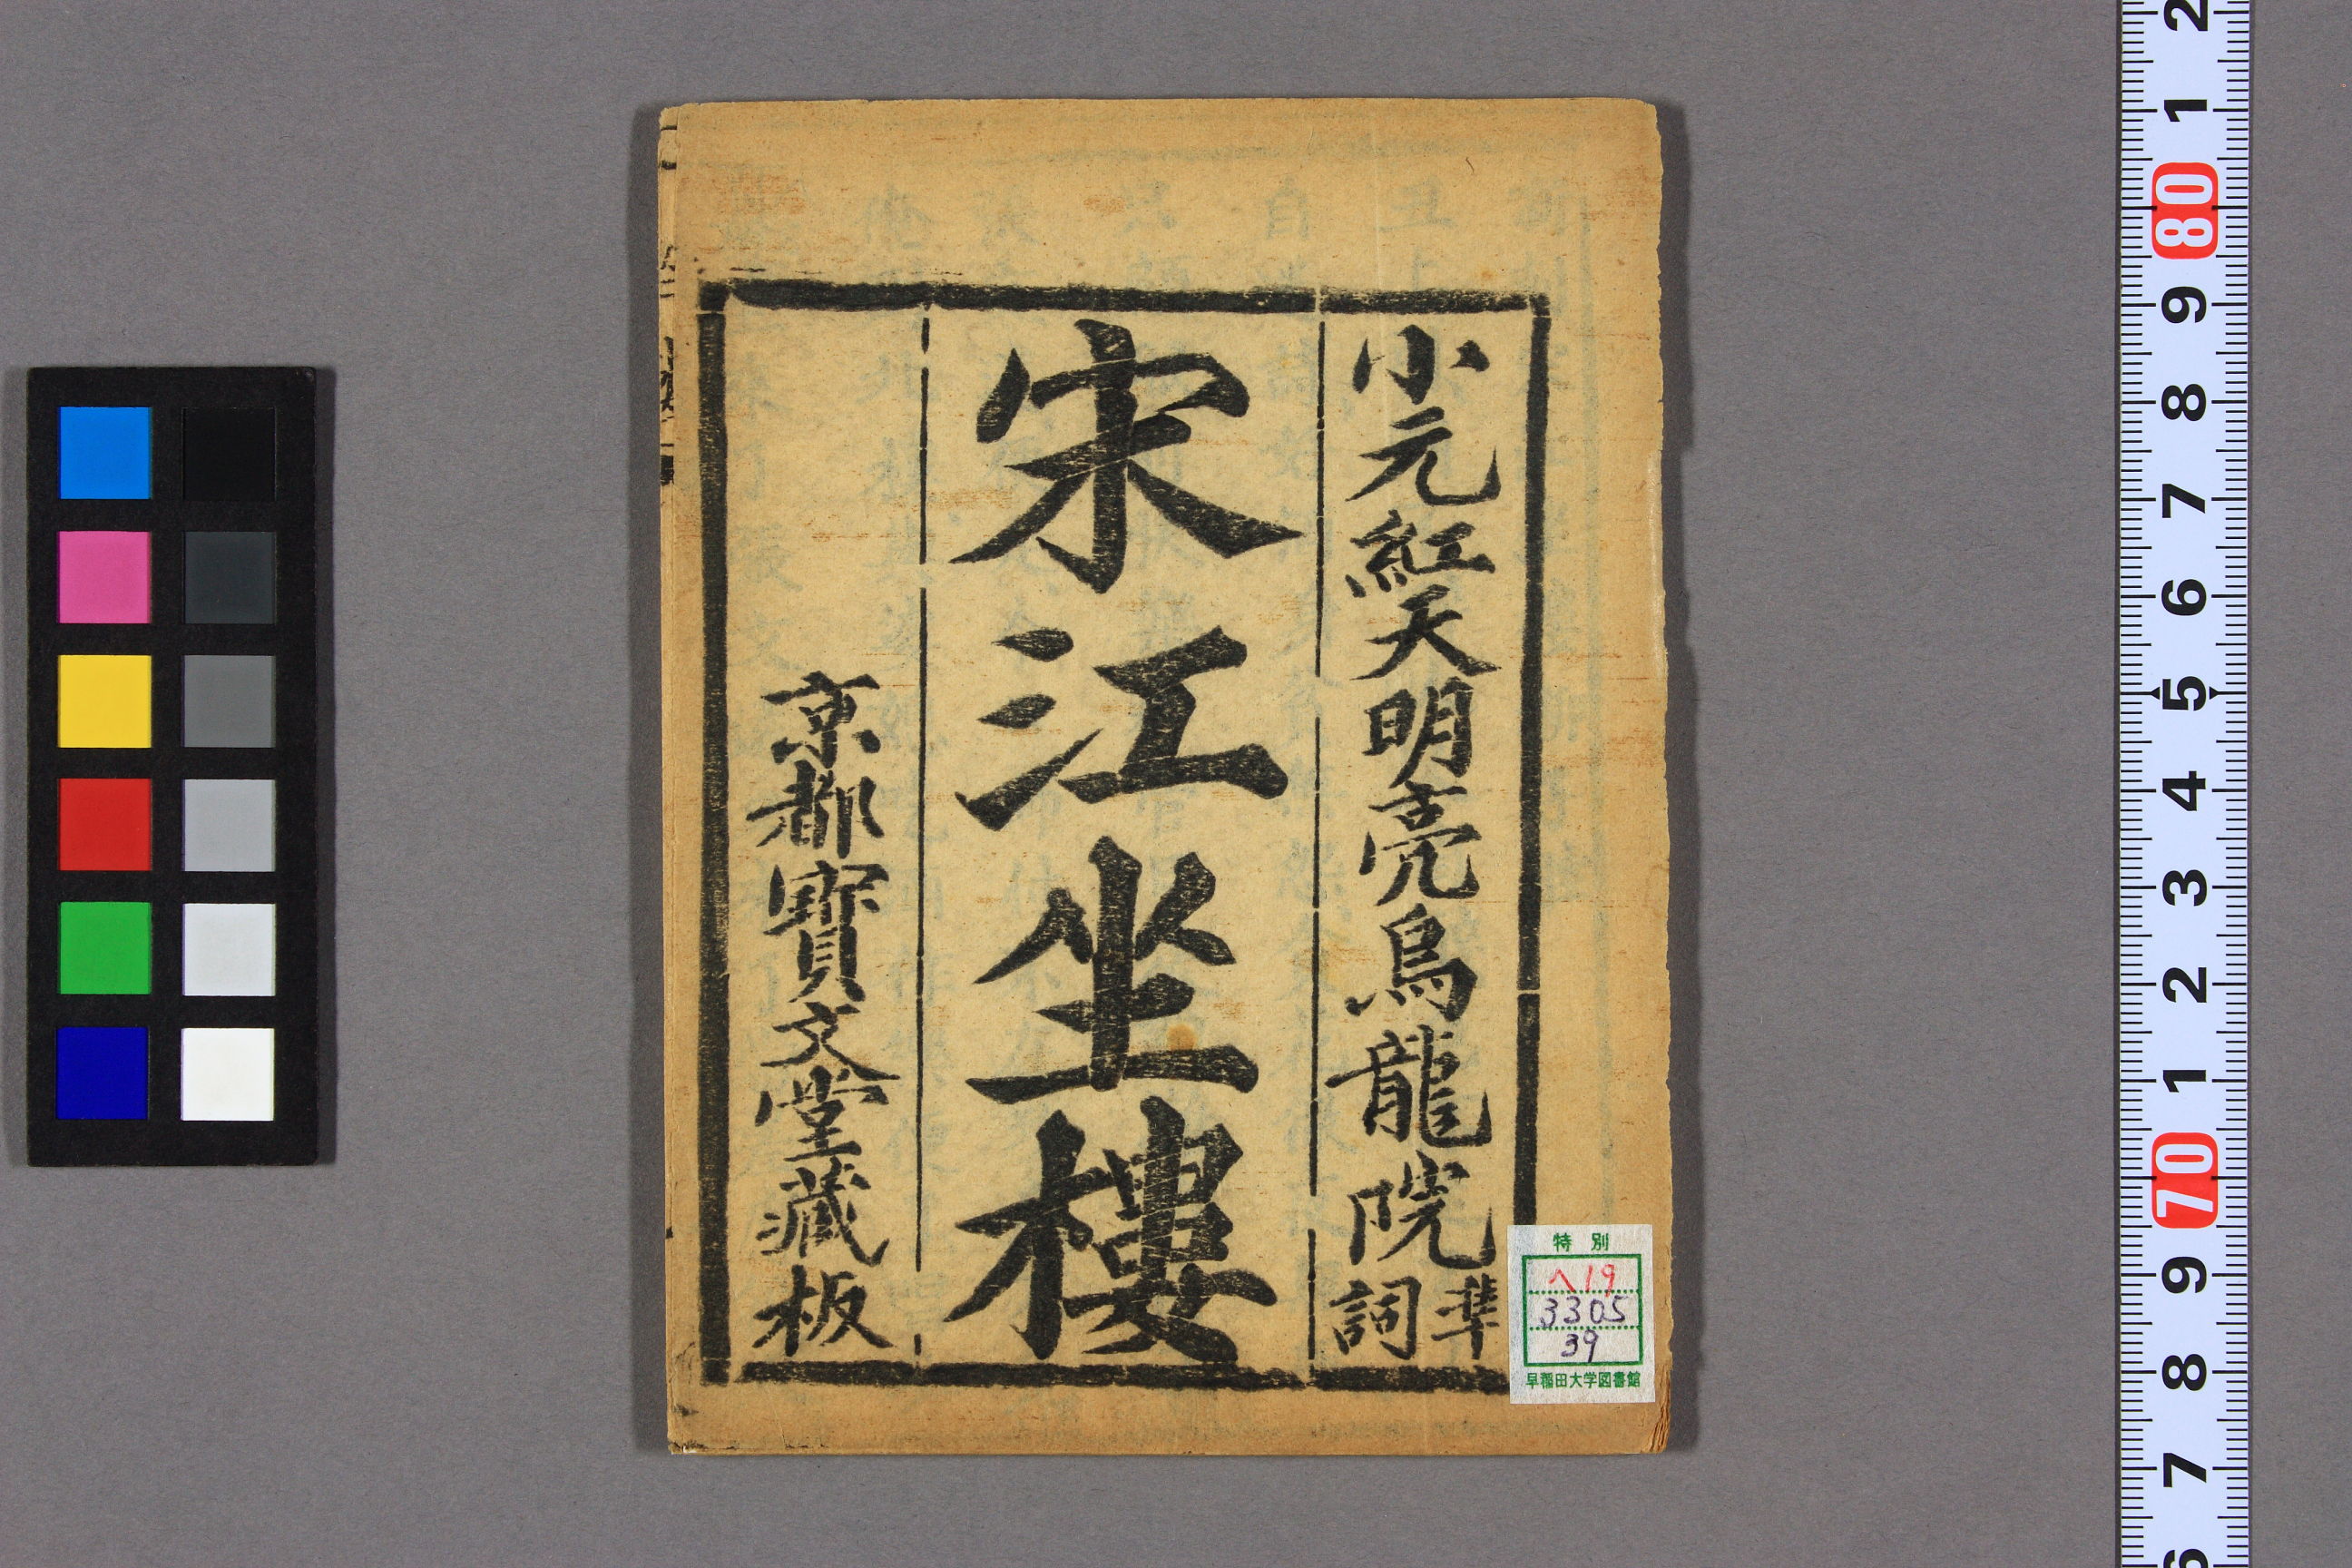 小元紅天明亮烏龍院準詞
宋江坐樓
京都寶文堂藏板
特別
ヘ19
3305
39
早稲田大学図書館
2
1
80
9
8
7
6
5
4
3
2
1
70
9
8
7
6